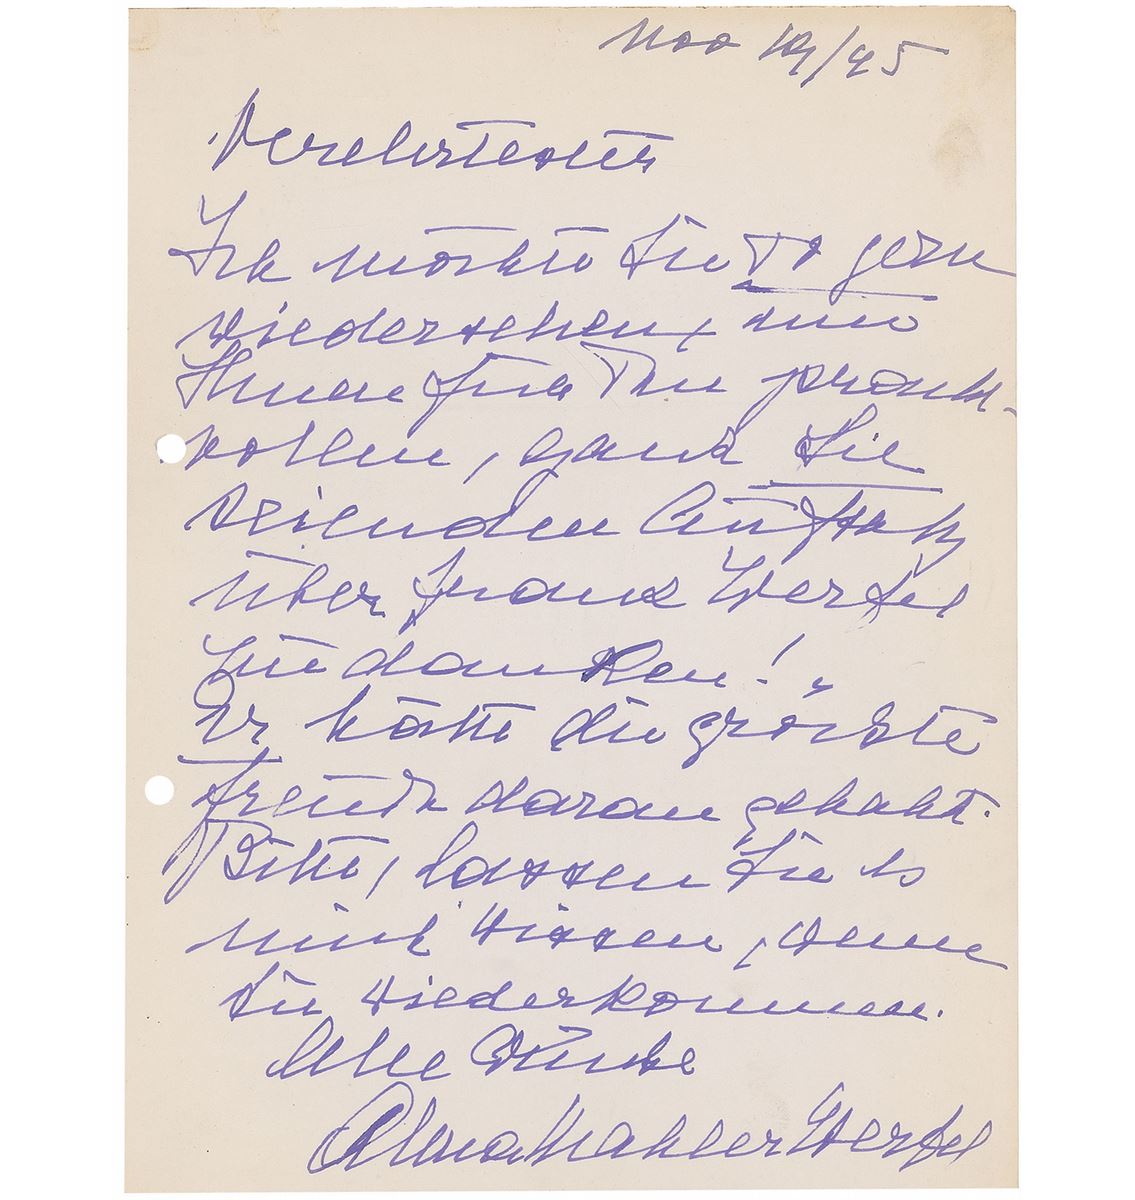 Nov 19/45
Verehrtester
Ich möchte Sie so gern
wiedersehen, um
Ihnen für pracht-
vollen, ganz Sie
seienden Aufsatz
über Franz Werfel
zu danken!
Er hätte die grösste
Freude daran gehabt.
Bitte, lassen Sie es
mich wissen, wenn
Sie wiederkommen.
Alle Wünsche
Alma Mahler Werfel